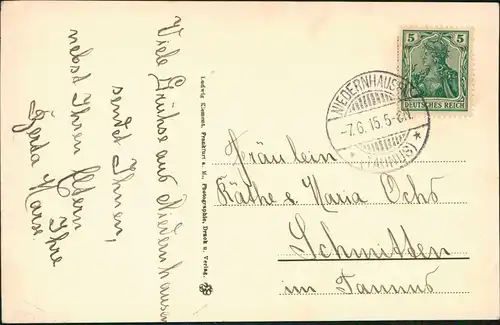 Viele Grühse aus Niedernhausen
sendet Ihnen,
nebst Ihren Eltern
Ihre
Gerda Marx.
Ludwig Klement, Frankfurt a. M., Photographie, Druck u. Verlag.
5 5
DEUTSCHES REICH
NIEDERNHAUSEN
-7.6.15.5-6N.
* (TAUNUS) *
Fräulein
Käthe & Maria Ochs
Schmitten
im Taunus